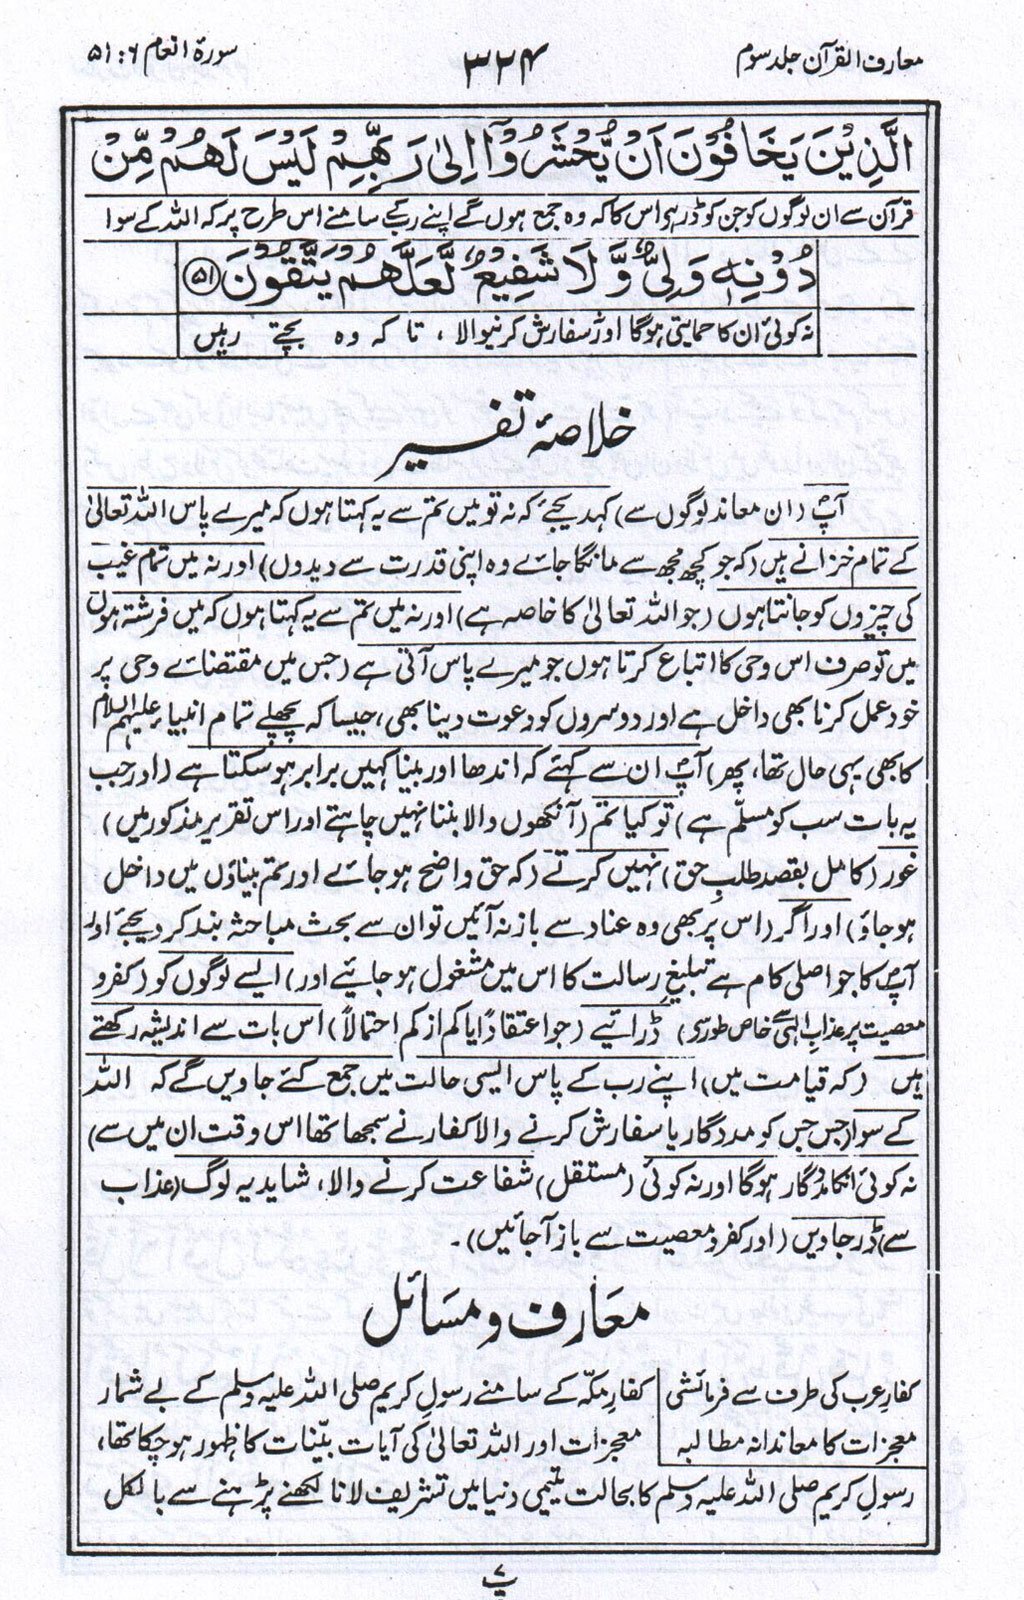 معارف القرآن جلد سوم
۳۲۴
سورۃ انعام ۶ : ۵۱
الَّذِيْنَ يَخَافُوْنَ اَنْ يُّحْشَرُوْٓا اِلٰى رَبِّهِمْ لَيْسَ لَهُمْ مِّنْ
قرآن سے ان لوگوں کو جن کو ڈر ہی اس کا کہ وہ جمع ہوں گے اپنے رب کے سامنے اس طرح پر کہ اللہ کے سوا
دُوْنِهٖ وَلِيٌّ وَّلَا شَفِيْعٌ لَّعَلَّهُمْ يَتَّقُوْنَ ﴿۵۱﴾
نہ کوئی ان کا حمایتی ہوگا اور نہ سفارش کرنیوالا ، تا کہ وہ بچتے رہیں
خلاصۂ تفسیر
آپؐ (ان معاند لوگوں سے) کہدیجئے کہ نہ تو میں تم سے یہ کہتا ہوں کہ میرے پاس اللہ تعالیٰ
کے تمام خزانے ہیں (کہ جو کچھ مجھ سے مانگا جائے وہ اپنی قدرت سے دیدوں) اور نہ میں تمام غیب
کی چیزوں کو جانتا ہوں (جو اللہ تعالیٰ کا خاصہ ہے) اور نہ میں تم سے یہ کہتا ہوں کہ میں فرشتہ ہوں
میں تو صرف اس وحی کا اتباع کرتا ہوں جو میرے پاس آتی ہے (جس میں مقتضائے وحی پر
خود عمل کرنا بھی داخل ہے اور دوسروں کو دعوت دینا بھی، جیسا کہ پچھلے تمام انبیاء علیہم السلام
کا بھی یہی حال تھا، پھر) آپؐ ان سے کہئے کہ اندھا اور بینا کہیں برابر ہو سکتا ہے (اور جب
یہ بات سب کو مسلّم ہے) تو کیا تم (آنکھوں والا بننا نہیں چاہتے اور اس تقریر مذکور میں)
غور (کامل بقصد طلبِ حق) نہیں کرتے (کہ حق واضح ہو جائے اور تم بیناؤں میں داخل
ہو جاؤ) اور اگر (اس پر بھی وہ عناد سے باز نہ آئیں تو ان سے بحث مباحثہ بند کر دیجئے اور
آپؐ کا جو اصلی کام ہے تبلیغِ رسالت کا اس میں مشغول ہو جائیے اور) ایسے لوگوں کو (کفر و
معصیت پر عذابِ الٰہی سے خاص طور سی) ڈرائیے (جو اعتقاداً یا کم از کم احتمالاً) اس بات سے اندیشہ رکھتے
ہیں (کہ قیامت میں) اپنے رب کے پاس ایسی حالت میں جمع کئے جاویں گے کہ اللہ
کے سوا (جس جس کو مددگار یا سفارش کرنے والا کفار نے سمجھا تھا اس وقت ان میں سے)
نہ کوئی انکا مددگار ہوگا اور نہ کوئی (مستقل) شفاعت کرنے والا، شاید یہ لوگ (عذاب
سے) ڈر جاویں (اور کفر و معصیت سے باز آجائیں)۔
معارف و مسائل
کفارِ عرب کی طرف سے فرمائشی
معجزات کا معاندانہ مطالبہ
کفارِ مکّہ کے سامنے رسولِ کریم صلی اللہ علیہ وسلم کے بے شمار
معجزات اور اللہ تعالیٰ کی آیات بیّنات کا ظہور ہو چکا تھا،
رسولِ کریم صلی اللہ علیہ وسلم کا بحالت یتیمی دنیا میں تشریف لانا لکھنے پڑھنے سے بالکل
پ ۷